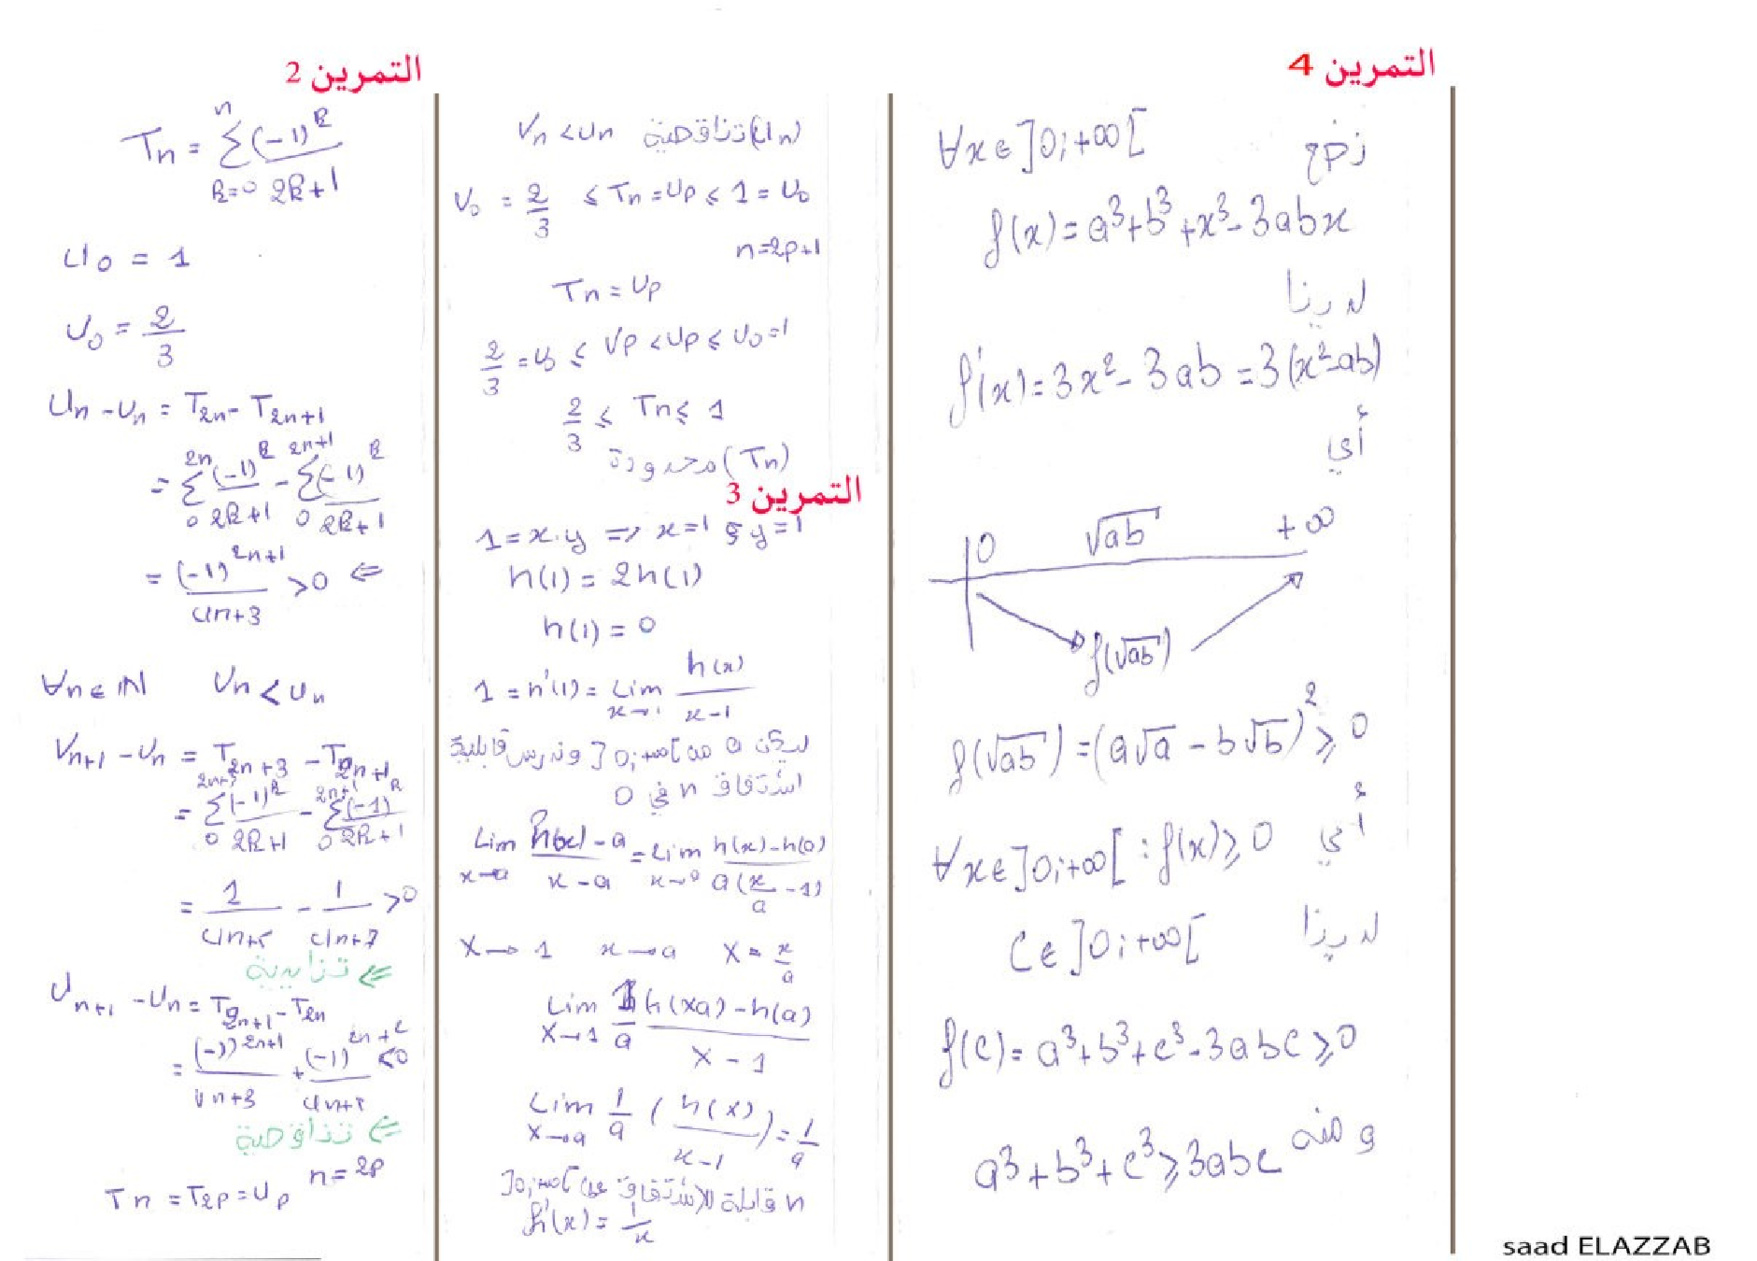 التمرين 2
T_n = \sum_{k=0}^{n} \frac{(-1)^k}{2k+1}
U_0 = 1
V_0 = \frac{2}{3}
U_n - V_n = T_{2n} - T_{2n+1}
= \sum_{0}^{2n} \frac{(-1)^k}{2k+1} - \sum_{0}^{2n+1} \frac{(-1)^k}{2k+1}
= \frac{(-1)^{2n+1}}{4n+3} > 0 ⇐
∀n ∈ ℕ V_n < U_n
V_{n+1} - V_n = T_{2n+3} - T_{2n+1}
= \sum_{0}^{2n+3} \frac{(-1)^k}{2k+1} - \sum_{0}^{2n+1} \frac{(-1)^k}{2k+1}
= \frac{1}{4n+5} - \frac{1}{4n+7} > 0
⇐ تزايدية
U_{n+1} - U_n = T_{2n+1} - T_{2n}
= \frac{(-1)^{2n+1}}{4n+3} + \frac{(-1)^{2n+2}}{4n+5} < 0
⇐ تناقصية
n = 2p
T_n = T_{2p} = U_p
V_n < U_n (U_n) تناقصية
V_0 = \frac{2}{3} ≤ T_n = U_p ≤ 1 = U_0
n = 2p+1
T_n = V_p
\frac{2}{3} = V_0 ≤ V_p < U_p ≤ U_0 = 1
\frac{2}{3} ≤ T_n ≤ 1
(T_n) محدودة
التمرين 3
1 = x.y ⇒ x = 1 و y = 1
h(1) = 2h(1)
h(1) = 0
1 = h'(1) = Lim_{x→1} \frac{h(x)}{x-1}
ليكن a من ]0;+∞[ وندرس قابلية
اشتقاق h في a
Lim_{x→a} \frac{h(x) - a}{x - a} = Lim_{x→a} \frac{h(x) - h(a)}{a(\frac{x}{a} - 1)}
X → 1 x → a X = \frac{x}{a}
Lim_{X→1} \frac{1}{a} \frac{h(Xa) - h(a)}{X - 1}
Lim_{X→a} \frac{1}{a} (\frac{h(X)}{x-1}) = \frac{1}{a}
h قابلة للاشتقاق على ]0;+∞[
h'(x) = \frac{1}{x}
التمرين 4
نضع ∀x ∈ ]0;+∞[
f(x) = a³ + b³ + x³ - 3abx
لدينا
f'(x) = 3x² - 3ab = 3(x² - ab)
أي
0 √ab +∞
f(√ab)
f(√ab) = (a√a - b√b)² ≥ 0
أي
∀x ∈ ]0;+∞[ : f(x) ≥ 0
لدينا C ∈ ]0;+∞[
f(c) = a³ + b³ + c³ - 3abc ≥ 0
ومنه a³ + b³ + c³ ≥ 3abc
saad ELAZZAB